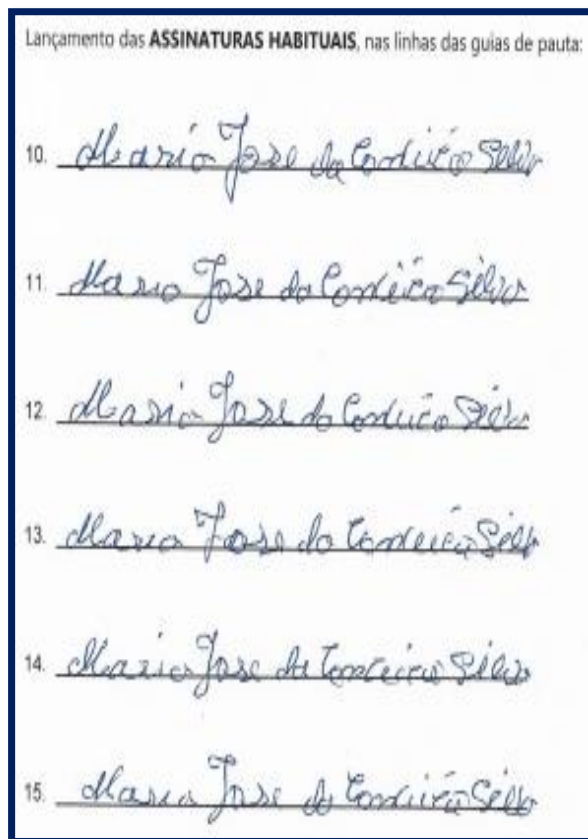 Lançamento das ASSINATURAS HABITUAIS, nas linhas das guias de pauta:
10. Maria Jose da Conceição Silva
11. Maria Jose da Conceição Silva
12. Maria Jose da Conceição Silva
13. Maria Jose da Conceição Silva
14. Maria Jose da Conceição Silva
15. Maria Jose da Conceição Silva